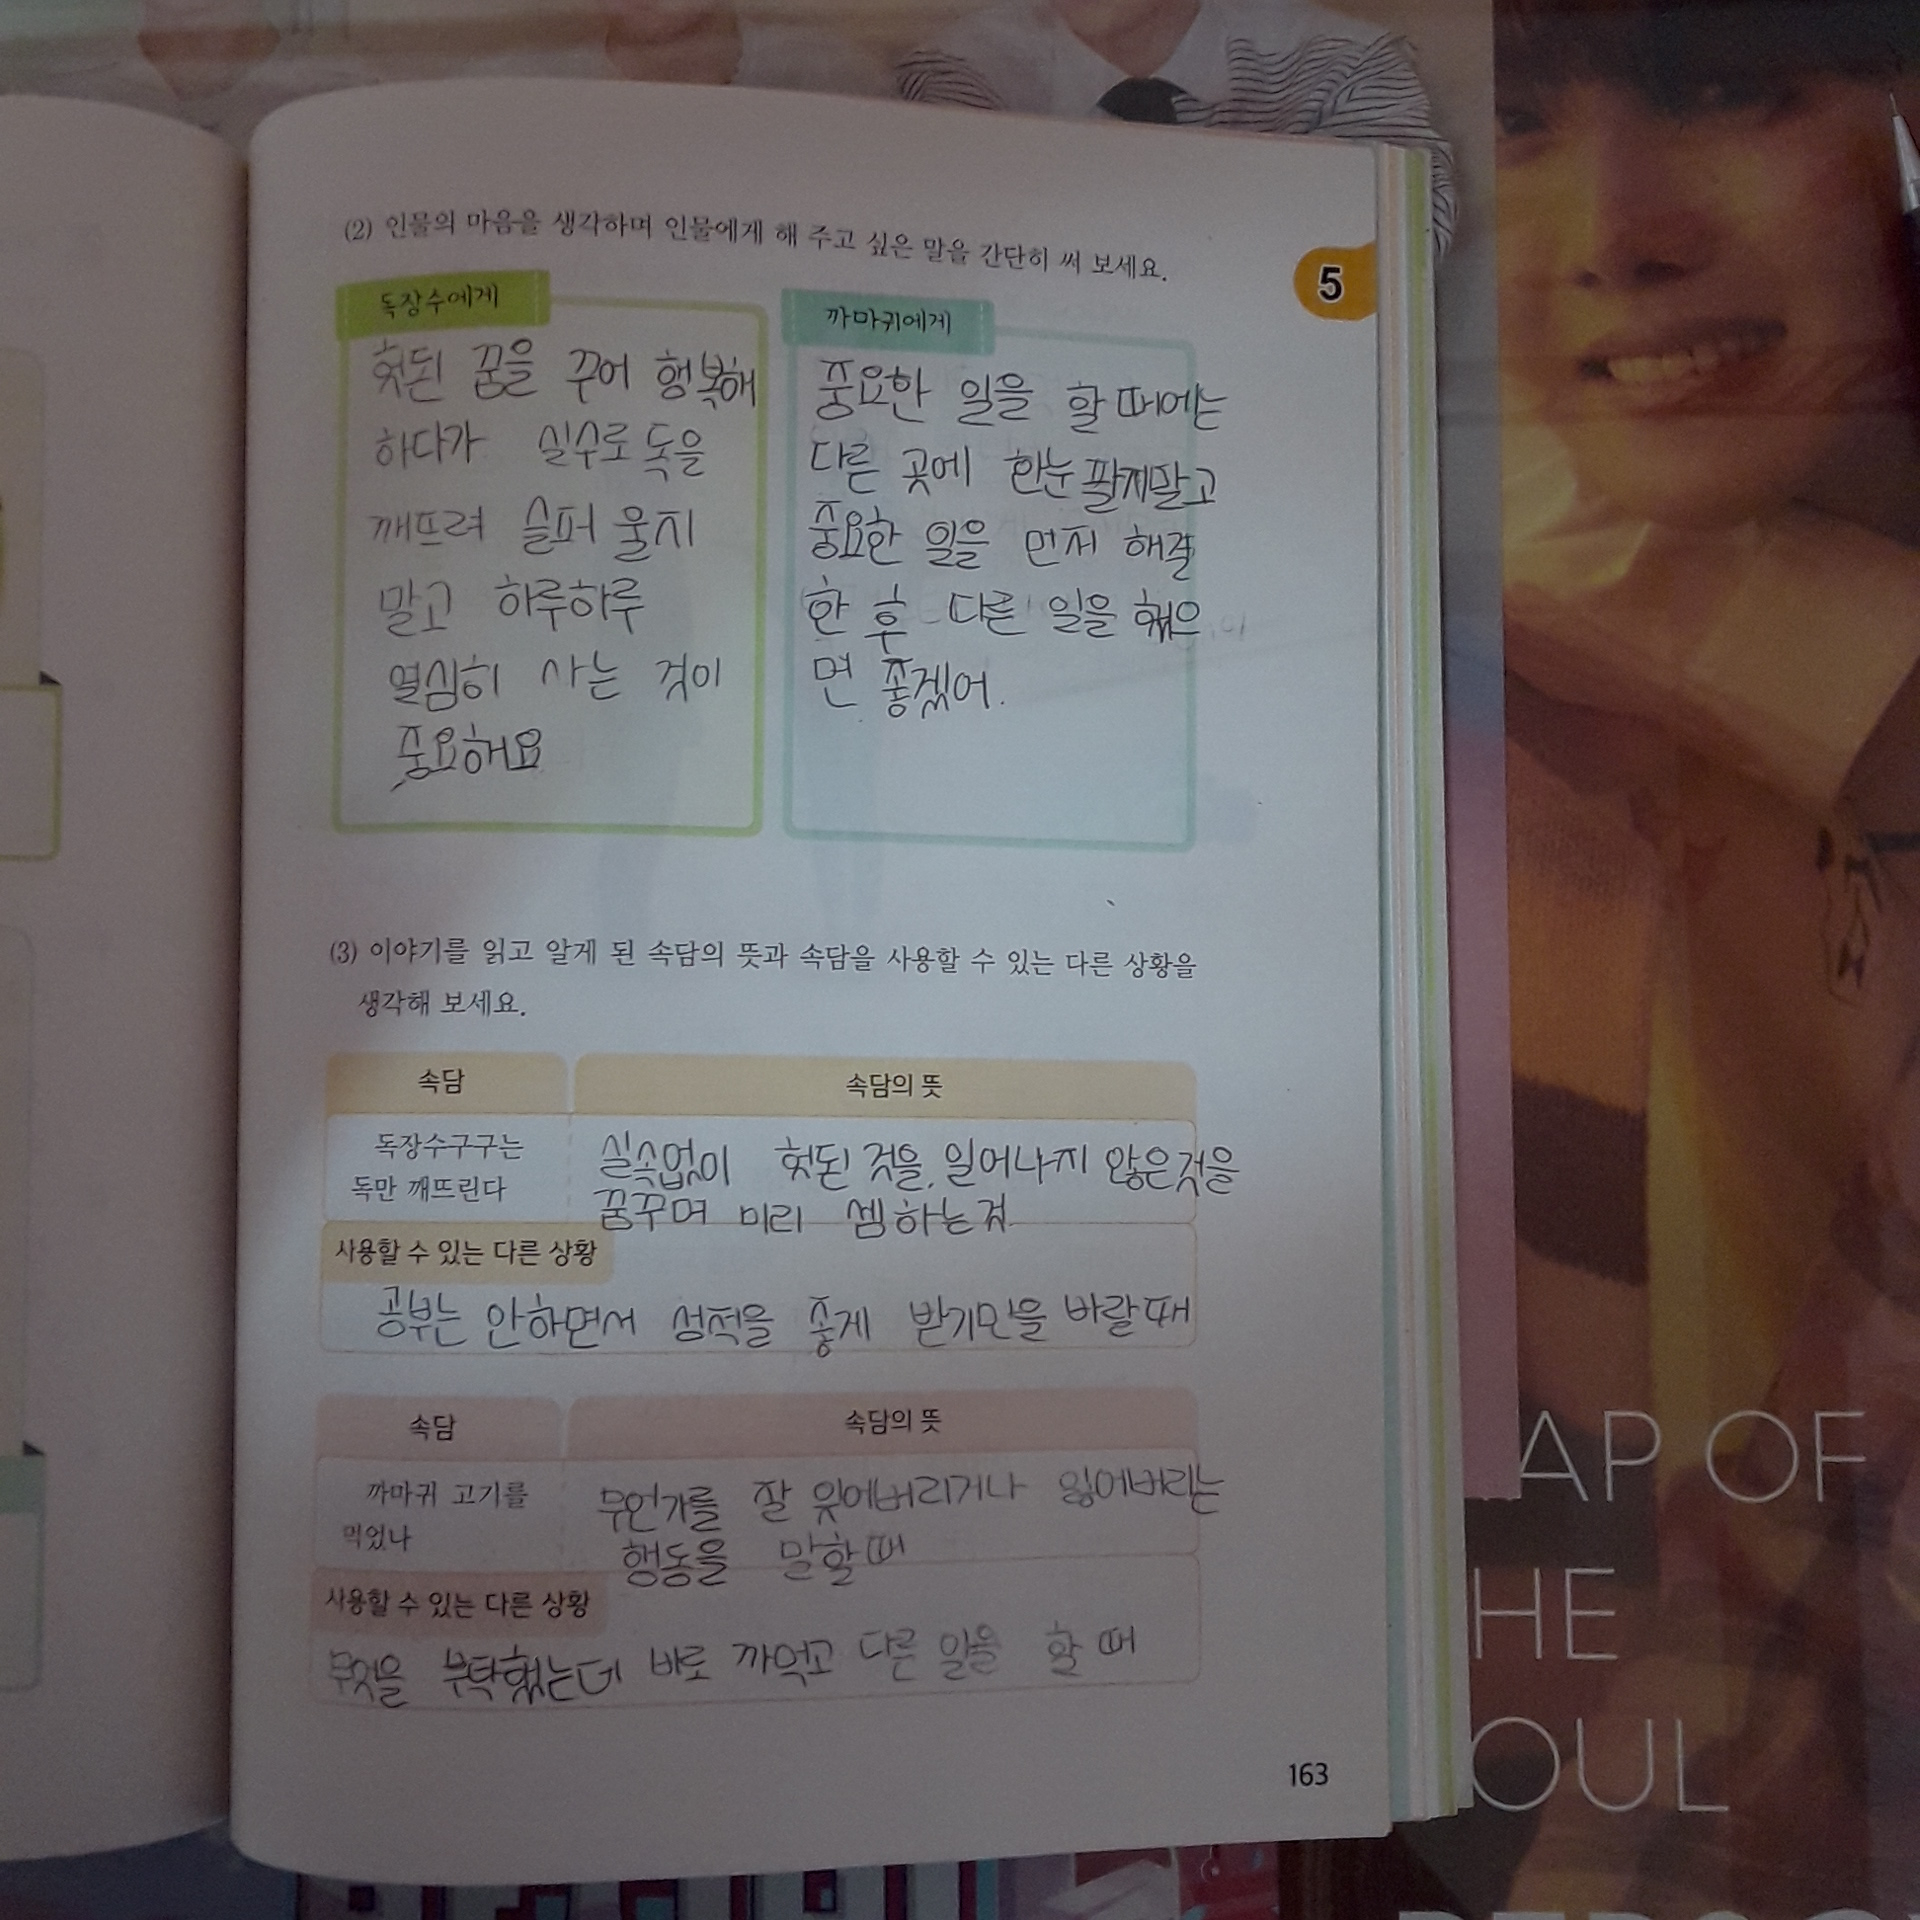 (2) 인물의 마음을 생각하며 인물에게 해 주고 싶은 말을 간단히 써 보세요.
5
독장수에게
헛된 꿈을 꾸어 행복해
하다가 실수로 독을
깨뜨려 슬퍼 울지
말고 하루하루
열심히 사는 것이
중요해요
까마귀에게
중요한 일을 할 때에는
다른 곳에 한눈 팔지말고
중요한 일을 먼저 해결
한 후 다른 일을 했으
면 좋겠어.
(3) 이야기를 읽고 알게 된 속담의 뜻과 속담을 사용할 수 있는 다른 상황을
생각해 보세요.
속담
속담의 뜻
독장수구구는
독만 깨뜨린다
실속없이 헛된 것을, 일어나지 않은것을
꿈꾸며 미리 셈하는것
사용할 수 있는 다른 상황
공부는 안하면서 성적을 좋게 받기만을 바랄때
속담
속담의 뜻
까마귀 고기를
먹었나
무언가를 잘 잊어버리거나 잃어버리는
행동을 말할때
사용할 수 있는 다른 상황
무엇을 부탁했는데 바로 까먹고 다른 일을 할 때
163
AP OF
HE
OUL